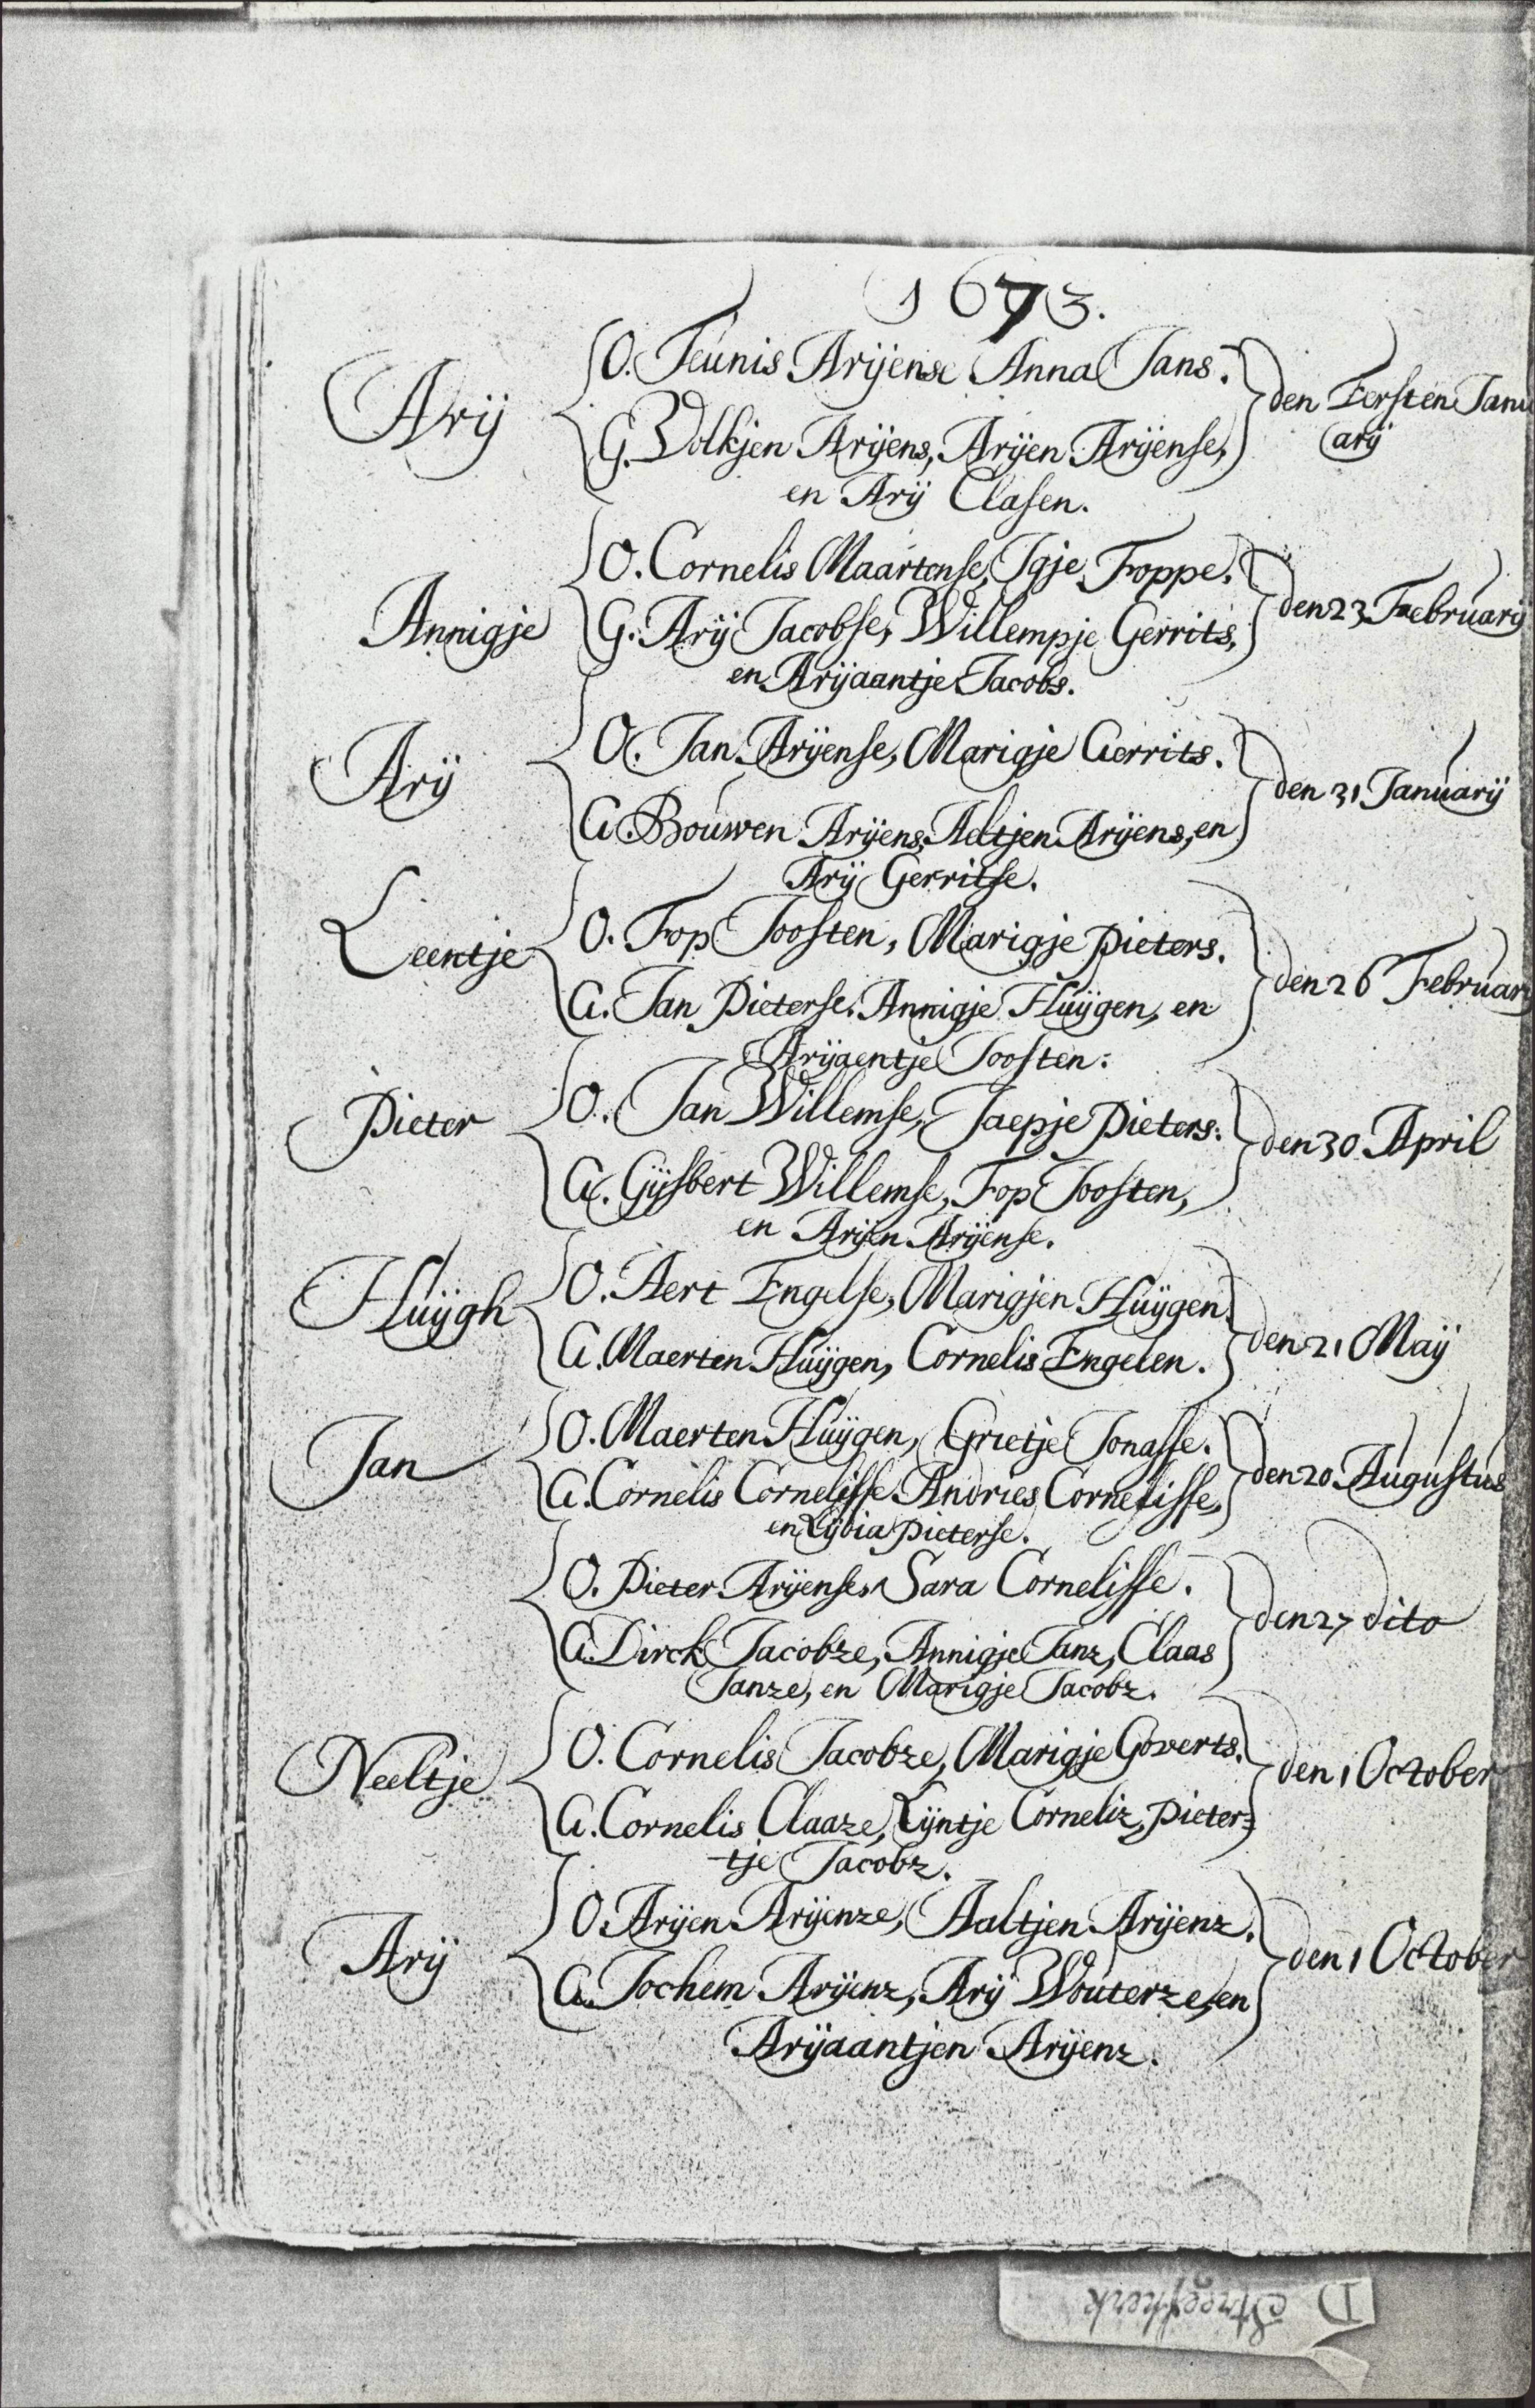 1673.
Arij
O. Teunis Arijense Anna Jans.
G. Volkjen Arijens, Arijen Arijense,
en Arij Clasen.
den Eersten Janu
arij
Annigje
O. Cornelis Maartense, Igje Foppe.
G. Arij Jacobse, Willempje Gerrits,
en Arijaantje Jacobs.
den 23 Februarij
Arij
O. Jan Arijense, Marigje Gerrits.
G. Bouwen Arijens, Aeltjen Arijens, en
Arij Gerritse.
den 31 Januarij
Leentje
O. Fop Joosten, Marigje Pieters.
G. Jan Pieterse. Annigje Huijgen, en
Arijaentje Joosten.
den 26 Februarij
Pieter
O. Jan Willemse, Jaepje Pieters.
G. Gijsbert Willemse, Fop Joosten,
en Arijen Arijense.
den 30 April
Huijgh
O. Aert Engelse, Marigjen Huijgen.
G. Maerten Huijgen, Cornelis Engelen.
den 21 Maij
Jan
O. Maerten Huijgen, Grietje Jonasse.
G. Cornelis Cornelisse Andries Cornelisse,
en Lijdia Pieterse.
den 20 Augustus
O. Pieter Arijense, Sara Cornelisse.
G. Dirck Jacobze, Annigje Janz, Claas
Janze, en Marigje Jacobz.
den 27 dito
Neeltje
O. Cornelis Jacobze, Marigje Goverts.
G. Cornelis Claaze, Lijntje Corneliz, Pieter=
tje Jacobz.
den 1 October
Arij
O. Arijen Arijenze, Aaltjen Arijenz.
G. Jochem Arijenz, Arij Wouterze, en
Arijaantjen Arijenz.
den 1 October
D Streefkerk